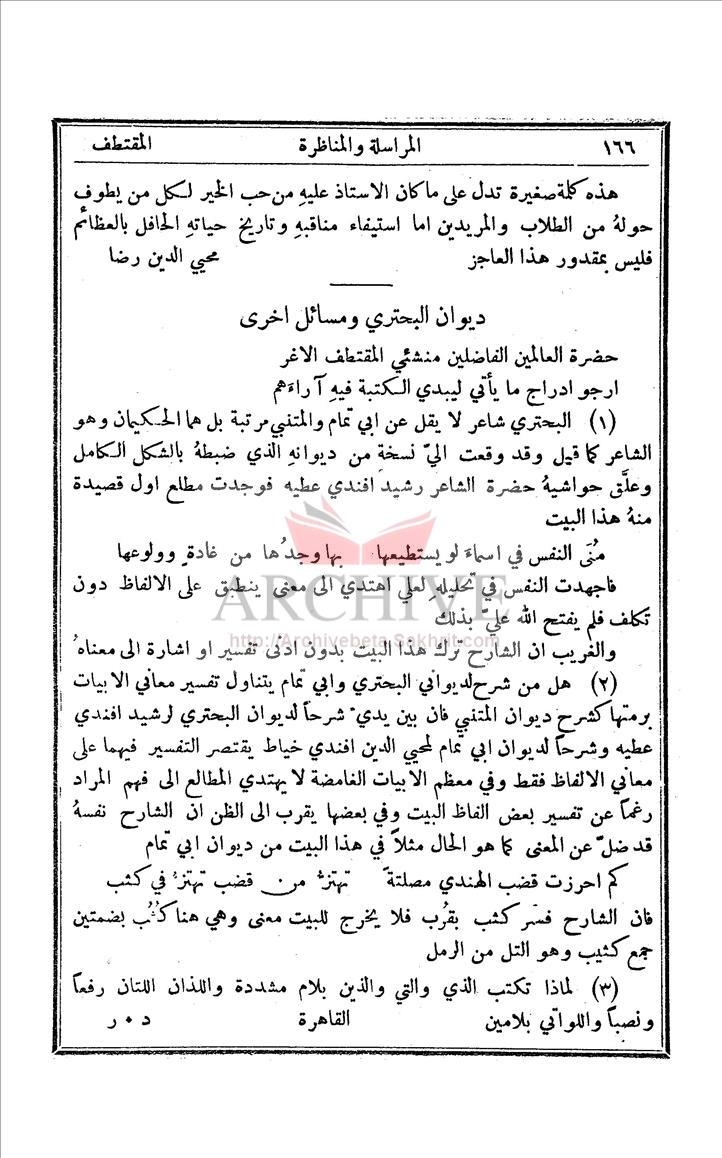 ١٦٦ المراسلة والمناظرة المقتطف
هذه كلمة صغيرة تدل على ما كان الاستاذ عليهِ من حب الخير لكل من يطوف
حولهُ من الطلاب والمريدين اما استيفاء مناقبهِ وتاريخ حياتهِ الحافل بالعظائم
فليس بمقدور هذا العاجز محيي الدين رضا
ديوان البحتري ومسائل اخرى
حضرة العالمين الفاضلين منشئي المقتطف الاغر
ارجو ادراج ما يأتي ليبدي الكتبة فيهِ آراءَهم
(١) البحتري شاعر لا يقل عن ابي تمام والمتنبي مرتبة بل هما الحكيمان وهو
الشاعر كما قيل وقد وقعت اليّ نسخة من ديوانهِ الذي ضبطهُ بالشكل الكامل
وعلَّق حواشيهُ حضرة الشاعر رشيد افندي عطيه فوجدت مطلع اول قصيدة
منهُ هذا البيت
مُنَى النفس في اسماءَ لو يستطيعها بها وجدُها من غادةٍ وولوعها
فاجهدت النفس في تحليلهِ لعلي اهتدي الى معنى ينطبق على الالفاظ دون
تكلف فلم يفتح الله عليّ بذلك
والغريب ان الشارح ترك هذا البيت بدون ادنى تفسير او اشارة الى معناهُ
(٢) هل من شرح لديواني البحتري وابي تمام يتناول تفسير معاني الابيات
برمتها كشرح ديوان المتنبي فان بين يديّ شرحاً لديوان البحتري لرشيد افندي
عطيه وشرحاً لديوان ابي تمام لمحيي الدين افندي خياط يقتصر التفسير فيهما على
معاني الالفاظ فقط وفي معظم الابيات الغامضة لا يهتدي المطالع الى فهم المراد
رغماً عن تفسير بعض الفاظ البيت وفي بعضها يقرب الى الظن ان الشارح نفسهُ
قد ضلّ عن المعنى كما هو الحال مثلاً في هذا البيت من ديوان ابي تمام
كم احرزت قضب الهندي مصلتةً تهتزُّ من قضب تهتزُّ في كثب
فان الشارح فسّر كثب بقُرب فلا يخرج للبيت معنى وهي هنا كُثُب بضمتين
جمع كثيب وهو التل من الرمل
(٣) لماذا تكتب الذي والتي والذين بلام مشددة واللذان اللتان رفعاً
ونصباً واللواتي بلامين القاهرة د ٠ ر
ARCHIVE
http://Archivebeta.Sakhrit.com